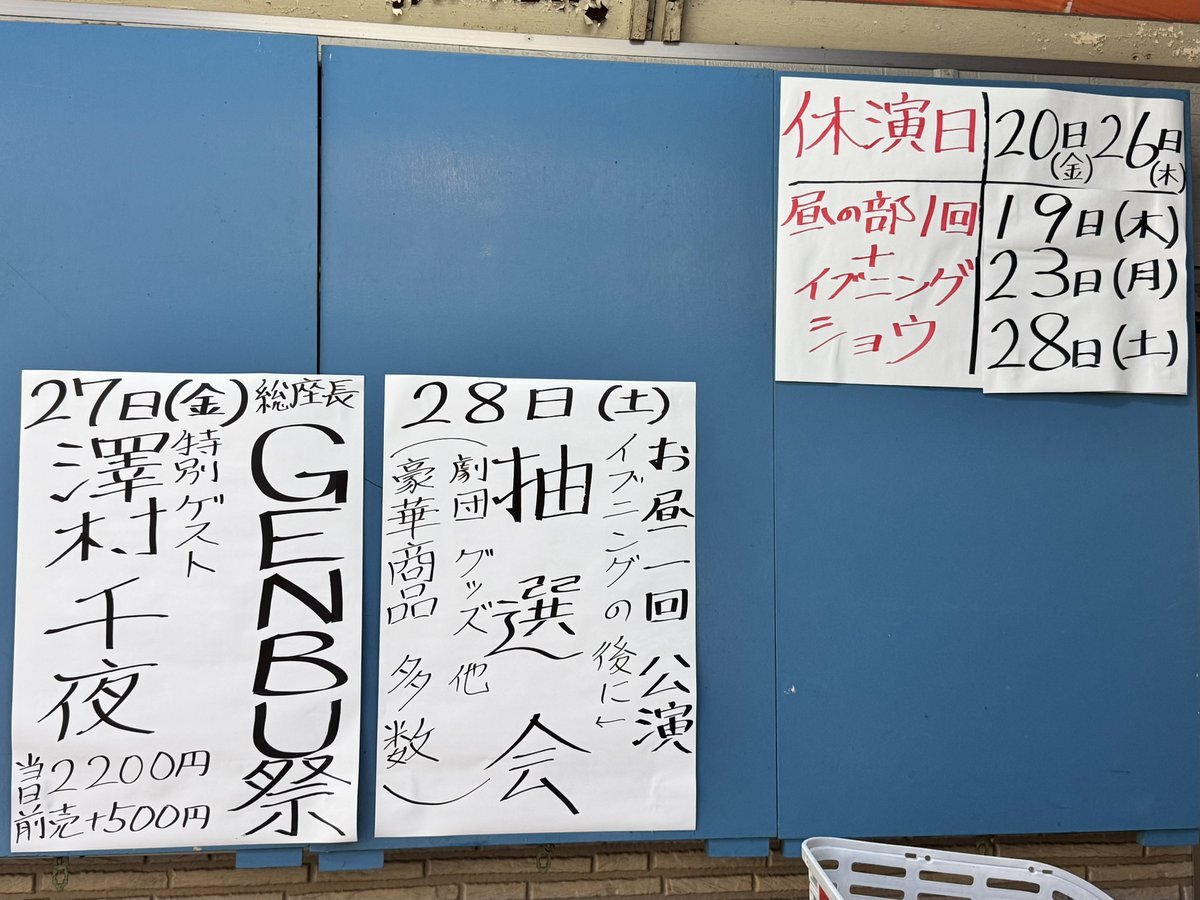 休演日 20日(金)26日(木)
昼の部1回 19日(木)
+
イブニング 23日(月)
ショウ 28日(土)
28日(土)
お昼一回公演
イブニングの後に↓
抽選会
(劇団グッズ他
豪華商品多数)
27日(金)総座長
GENBU祭
特別ゲスト
澤村千夜
当日2200円
前売+500円